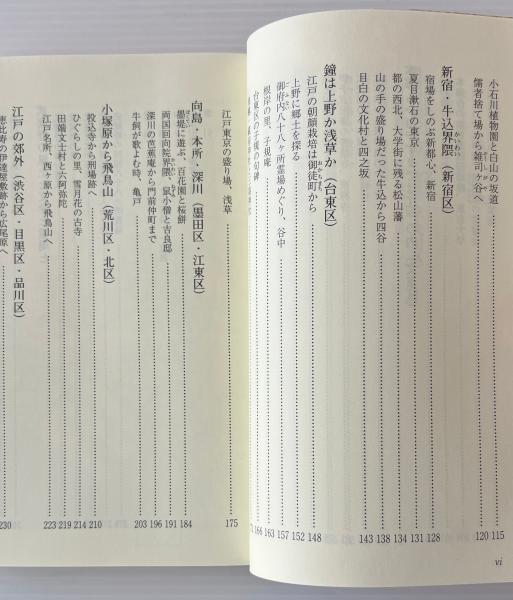 小石川植物園と白山の坂道 115
儒者捨て場から雑司ヶ谷へ 120
新宿・牛込界隈（新宿区）
宿場をしのぶ新都心、新宿 128
夏目漱石の東京 131
都の西北、大学街に残る松山藩 134
山の手の盛り場だった牛込から四谷 138
目白の文化村と四之坂 143
鐘は上野か浅草か（台東区）
江戸の朝顔栽培は御徒町から 148
上野に郷土を探る 152
御府内八十八ヶ所霊場めぐり、谷中 157
根岸の里、子規庵 163
台東区の子規の句碑 166
vi
江戸東京の盛り場、浅草 175
向島・本所・深川（墨田区・江東区）
墨堤に遊ぶ、百花園と桜餅 184
両国回向院界隈、鼠小僧と吉良邸 191
深川の芭蕉庵から門前仲町まで 196
牛飼が歌よむ時、亀戸 203
小塚原から飛鳥山（荒川区・北区）
投込寺から刑場跡へ 210
ひぐらしの里、雪月花の古寺 214
田端文士村と六阿弥陀 219
江戸名所、西ヶ原から飛鳥山へ 223
江戸の郊外（渋谷区・目黒区・品川区）
恵比寿の伊達屋敷跡から広尾原へ 230